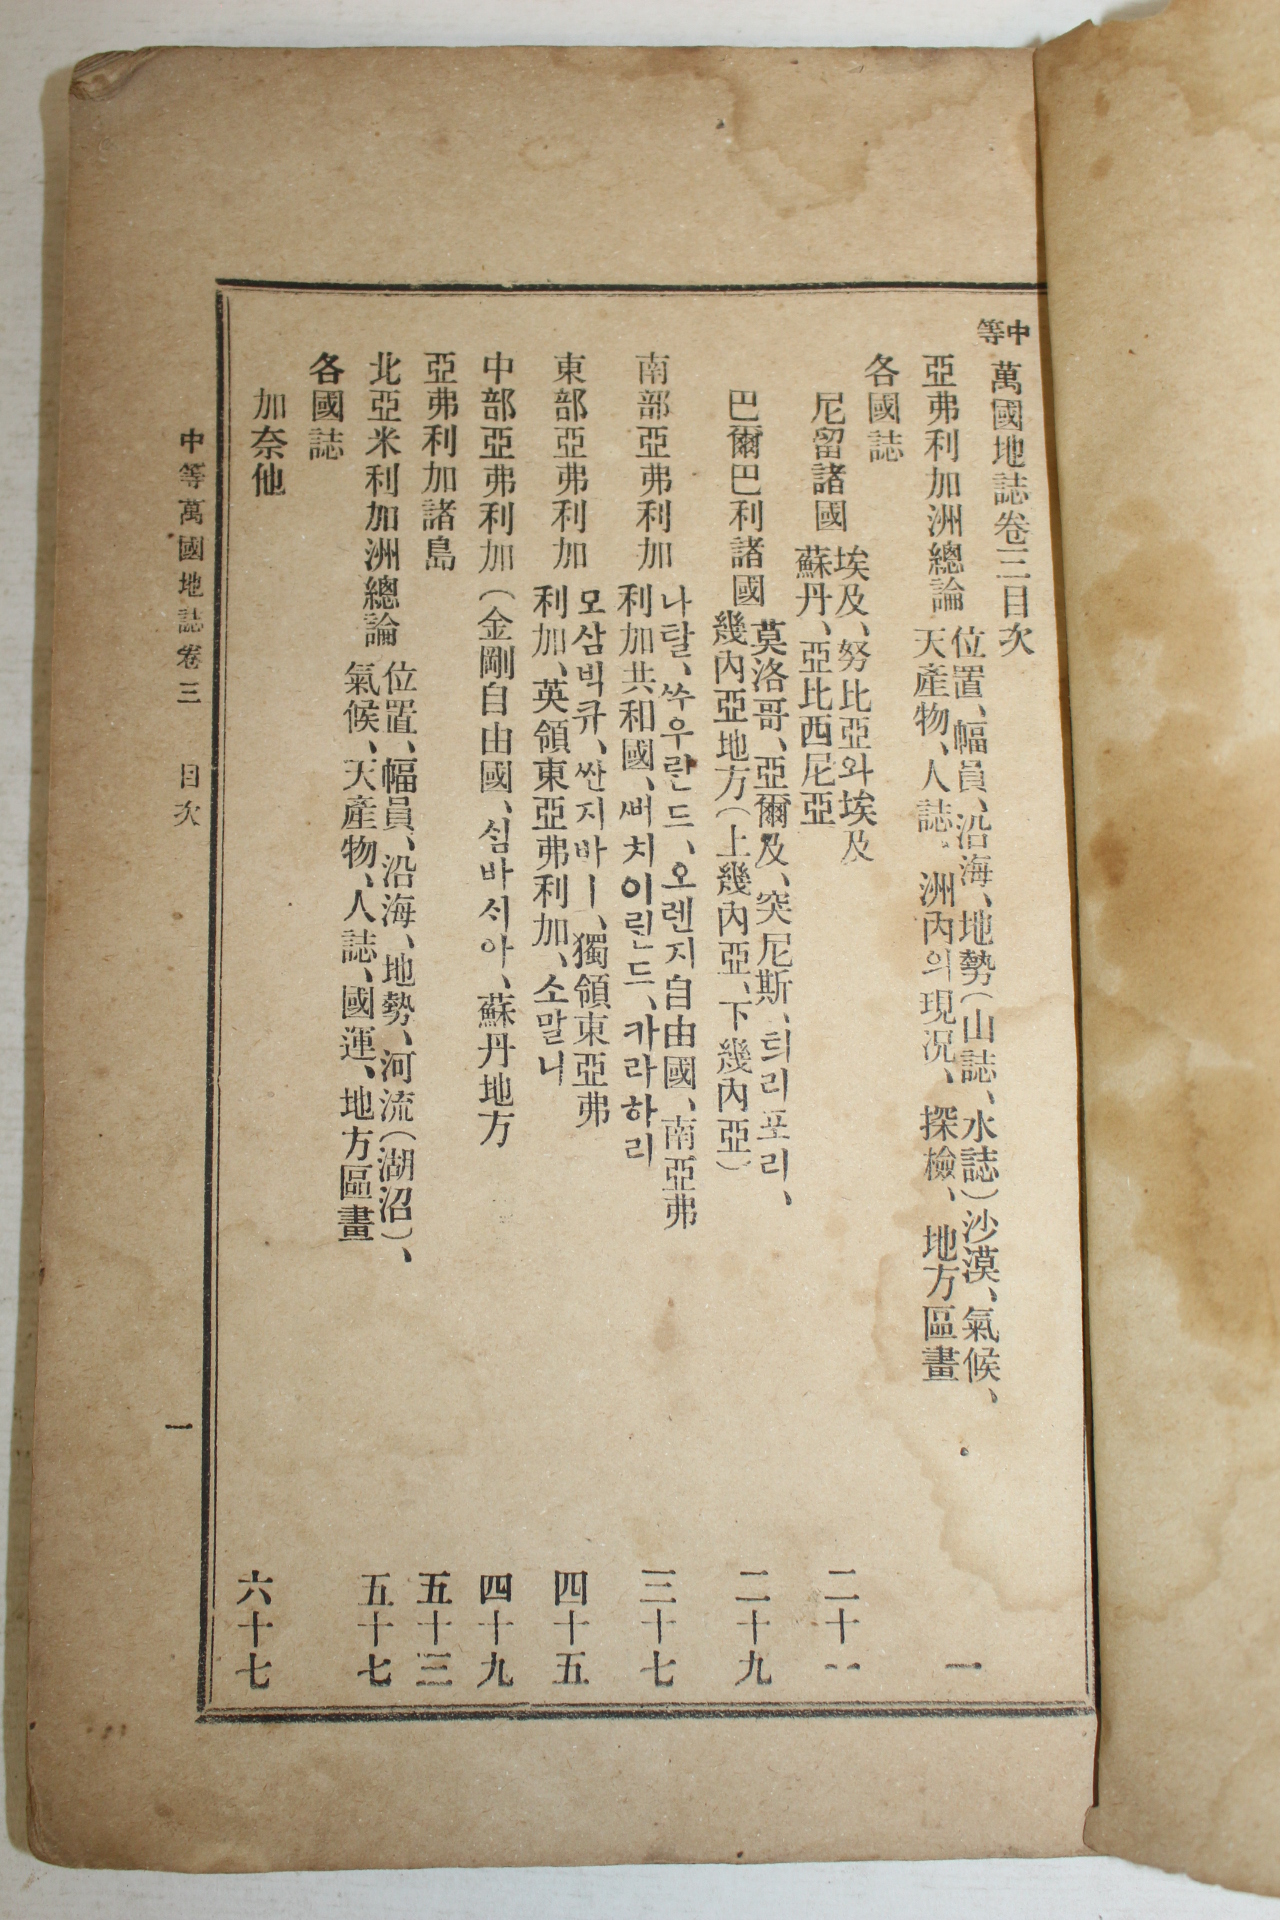 中等 萬國地誌卷三目次
亞弗利加洲總論
位置、幅員、沿海、地勢(山誌、水誌)沙漠、氣候、
天產物、人誌、洲內의現况、探檢、地方區畫
一
各國誌
尼留諸國
埃及、努比亞와埃及
蘇丹、亞比西尼亞
二十一
巴爾巴利諸國
莫洛哥、亞爾及、突尼斯、틔리포리、
幾內亞地方(上幾內亞、下幾內亞)
二十九
南部亞弗利加
나탈、쑤우란드、오렌지自由國、南亞弗
利加共和國、뻐치이린드、카라하리
三十七
東部亞弗利加
모삼빅큐、싼지바ㅣ、獨領東亞弗
利加、英領東亞弗利加、소말니
四十五
中部亞弗利加(金剛自由國、심바싀아、蘇丹地方
四十九
亞弗利加諸島
五十三
北亞米利加洲總論
位置、幅員、沿海、地勢、河流(湖沼)、
氣候、天產物、人誌、國運、地方區畫
五十七
各國誌
加奈他
六十七
中等萬國地誌卷三 目次
一